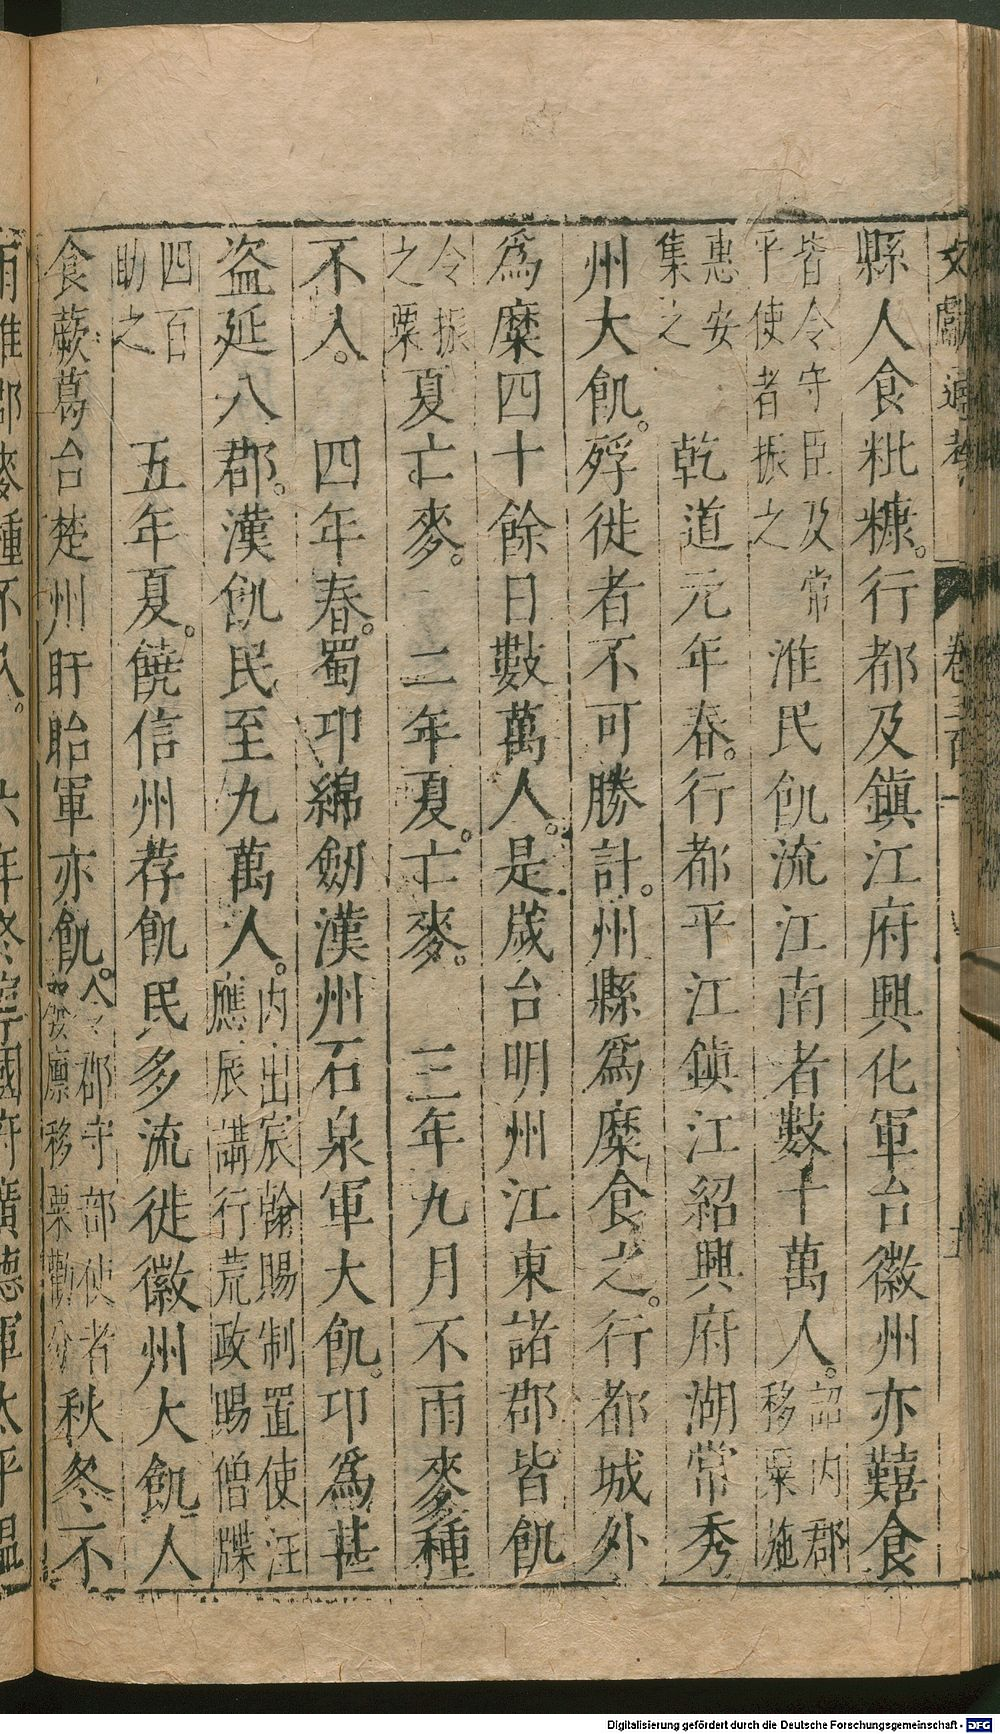 文獻通考 卷三百一
縣人食粃糠。行都及鎮江府興化軍台徽州亦囏食
淮民飢流江南者數十萬人。詔內郡移粟施
皆令守臣及常平使者振之
惠安集之 乾道元年春。行都平江鎮江紹興府湖常秀
州大飢。殍徙者不可勝計。州縣爲糜食之。行都城外
爲糜四十餘日數萬人。是歲台明州江東諸郡皆飢
令振之粟 夏亡麥。 二年夏。亡麥。 三年九月不雨麥種
不入。 四年春。蜀卭綿劒漢州石泉軍大飢。卭爲甚
盜延八郡。漢飢民至九萬人。內出宸翰賜制置使汪應辰講行荒政賜僧牒
四百助之 五年夏。饒信州荐飢民多流徙徽州大飢人
食蕨葛台楚州盱眙軍亦飢。郡守部使者發廪移粟勸分 秋冬不